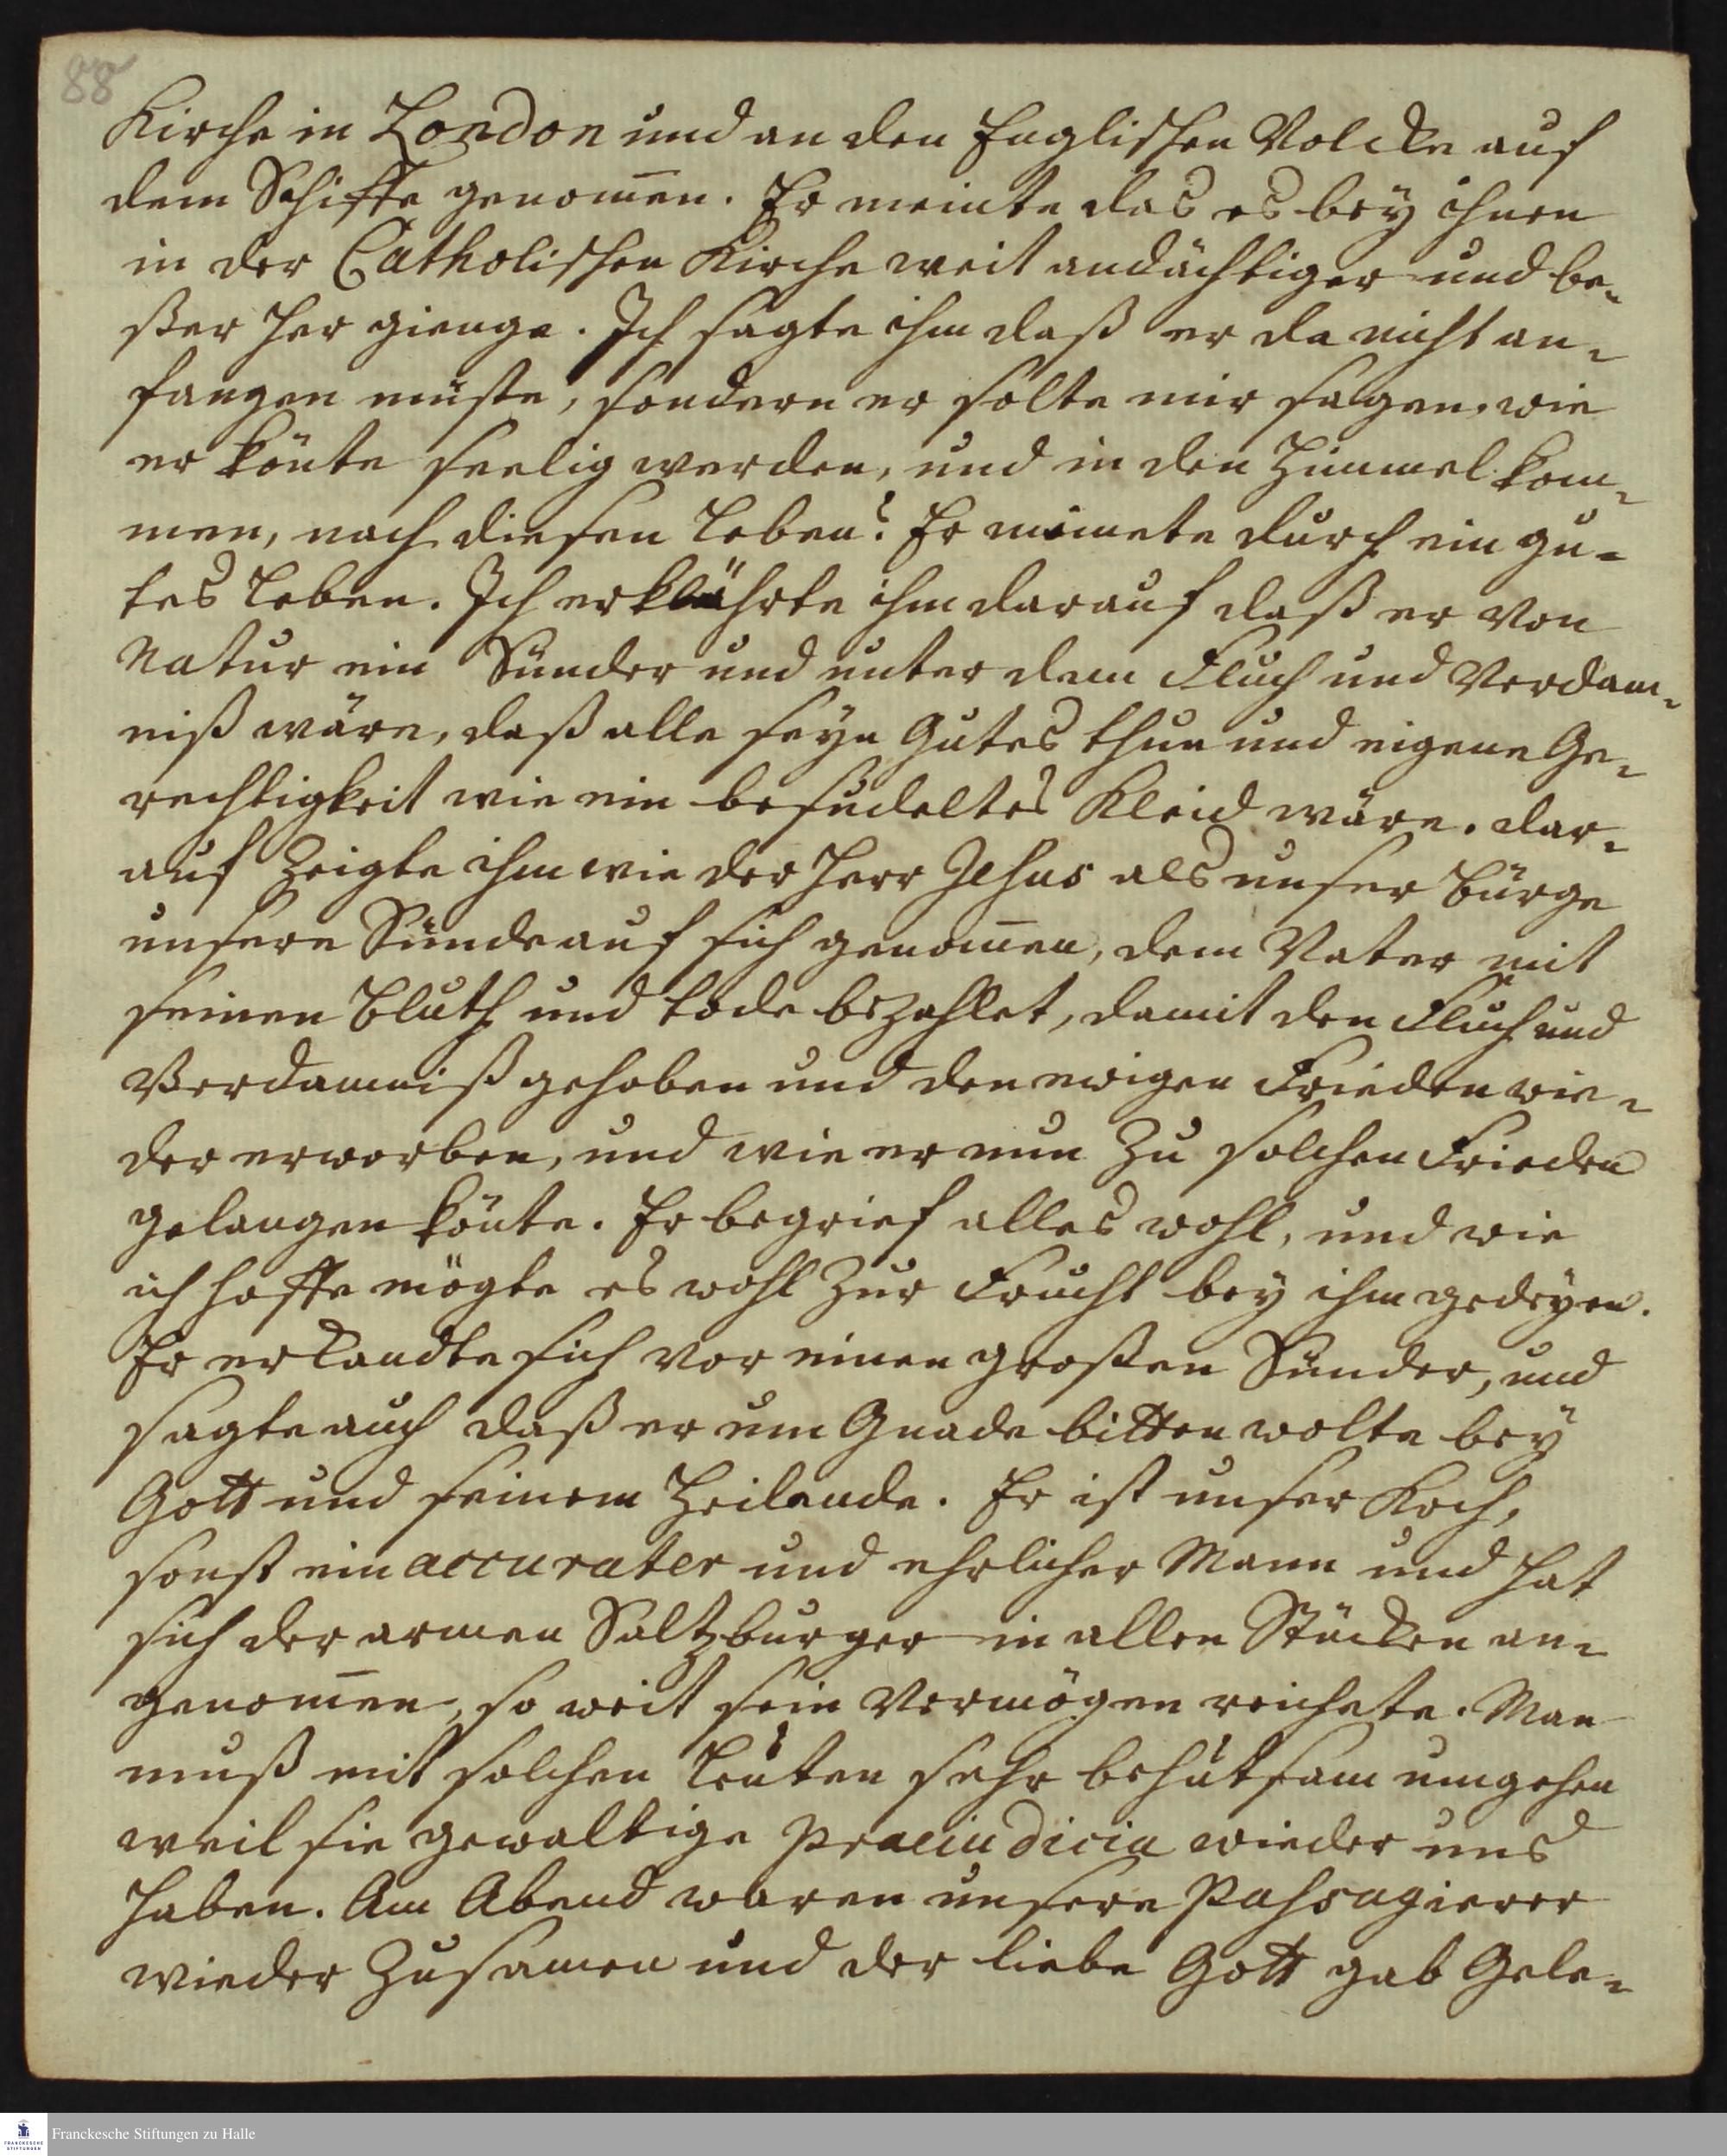 88
Kirche in London und an den Englischen Volcke auf
dem Schiffe genom̄en. Er meinte das es bey ihnen
in der Catholischen Kirche weit andächtiger und be-
ßer her gienge. Ich sagte ihm daß er da nicht an-
fangen müste, sondern er solte mir sagen, wie
er könte seelig werden, und in den Himmel kom-
men, nach diesen Leben? Er meinete durch ein gu-
tes Leben. Ich erklährte ihm darauf daß er von
Natur ein Sünder und unter dem Fluch und Verdam-
niß wäre, daß alle seyn Gutes thun und eigene Ge-
rechtigkeit wie ein besudeltes Kleid wäre. dar-
auf Zeigte ihm wie der Herr Jesus als unser Bürge
unsere Sünde auf sich genom̄en, dem Vater mit
seinen Bluth und Tode bezahlet, damit den Fluch und
Verdamniß gehoben und den ewigen Frieden wie-
der erworben, und wie er nun Zu solchen Frieden
gelangen könte. Er begrief alles wohl, und wie
ich hoffe mögte es wohl Zur Frucht bey ihm gedeyen.
Er erkandte sich vor einen großen Sünder, und
sagte auch daß er um Gnade bitten wolte bey
Gott und seinem Heilande. Er ist unser Koch,
sonst ein accurater und ehrlicher Mann und hat
sich der armen Saltzburger in allen Stücken an-
genom̄en, so weit sein Vermögen reichete. Man
muß mit solchen Leuten sehr behutsam umgehen
weil sie gewaltige praeiudicia wieder uns
haben. Am Abend waren unsere Passagierer
wieder Zusamen und der liebe Gott gab Gele-
Franckesche Stiftungen zu Halle
FRANCKESCHE
STIFTUNGEN